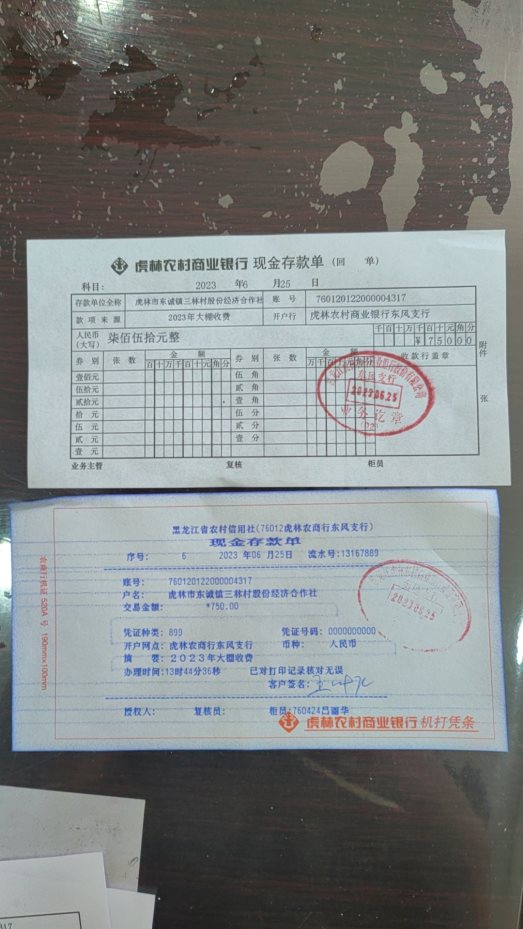 虎林农村商业银行 现金存款单 (回 单)
科目: 2023 年6 月25 日
存款单位全称 虎林市东诚镇三林村股份经济合作社 账 号 760120122000004317
款 项 来 源 2023年大棚收费 开户行 虎林农村商业银行东风支行
人民币 (大写) 柒佰伍拾元整 千百十万千百十元角分
¥75000
附件 张
券 别 张 数 金 额 券 别 张 数 金 额 收款行盖章
百十万千百十元角分 万千百十元角分
壹佰元 伍 角
伍拾元 贰 角
贰拾元 壹 角
拾 元 伍 分
伍 元 贰 分
贰 元 壹 分
壹 元
2023.06.25
业务讫章
业务主管 复核 柜员
黑龙江省农村信用社(76012虎林农商行东风支行)
现金存款单
序号: 6 2023 年 06 月25日 流水号:13167889
账号: 760120122000004317
户名: 虎林市东诚镇三林村股份经济合作社
交易金额: *750.00
2023.06.25
凭证种类: 899 凭证号码: 0000000000
开户网点: 虎林农商行东风支行 币种: 人民币
摘 要: 2023年大棚收费
办理时间:13时44分36秒 已对打印记录核对无误
客户签名:
授权人: 复核员: 柜员:760424吕丽华
虎林农村商业银行 机打凭条
190mm×100mm